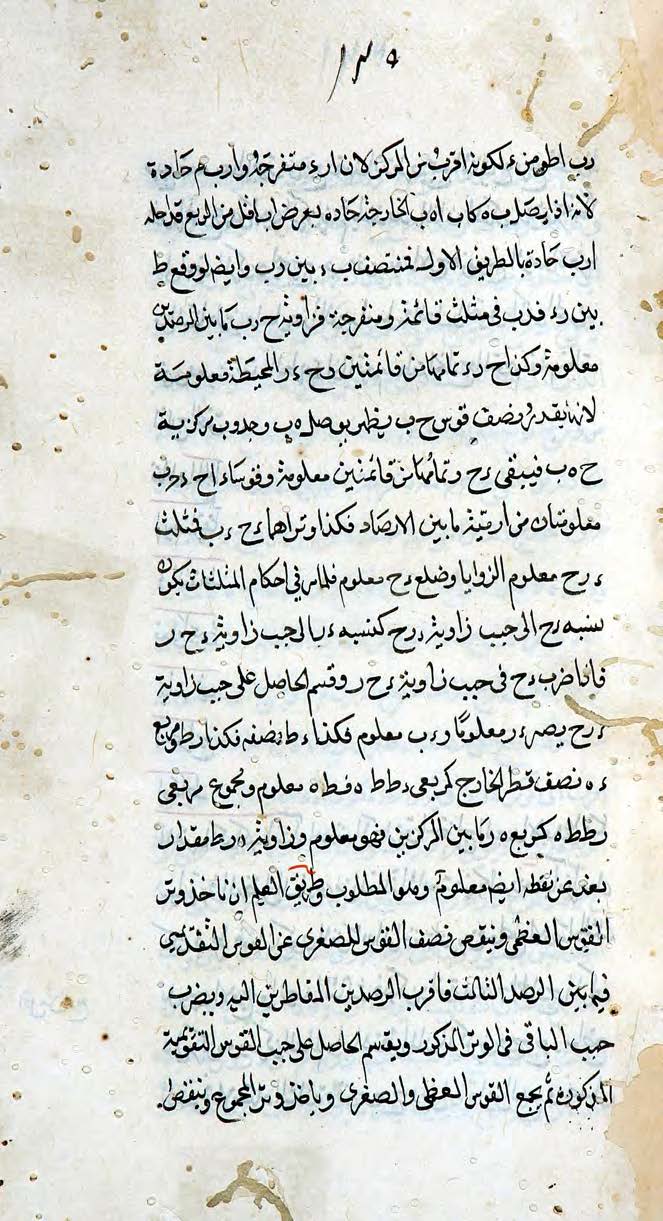 ١٣٥
رب اطول من ء لكونه اقرب من المركز لان ارء منفرجة وارب حادة
لانه اذا يصل ب ه كاب اه ب الخارجة حاده بعرض اب اقل من الربع فداخله
ارب حادة بالطريق الاولى فمنتصف ب ء بين رب وايضا لو وقع ط
بين رء فدب فى مثلث قائمة ومنفرجة فزاوية ح رب ما بين الرصدين
معلومة وكذا ح رء تمامها من قائمتين وح ء ر المحيطة معلومة
لانها بقدر نصف قوس ح ب يظهر بوصل ه ب وحدوب مركزية
ح ه ب فيبقى ء ح ر تمامهما من قائمتين معلومة وقوسا ء ا ح ء ح ب
معلومتان من ازمنة ما بين الارصاد فكذا وتراهما ء ح ء ب فمثلث
ء ر ح معلوم الزوايا وضلع ء ح معلوم فلما مر فى احكام المثلثات يكون
نسبة ء ح الى جيب زاوية ء ر ح كنسبة ء ر الى جيب زاوية ء ح ر
فاذا ضرب ء ح فى جيب زاوية ء ح ر وقسم الحاصل على جيب زاوية
ء ر ح يصير ء ر معلوما وء ب معلوم فكذا ء ط نصفه فكذا ر ط ومربع
ء ه نصف قطر الخارج كمربعى ء ط ط ه فط ه معلوم ومجموع مربعى
ر ط ط ه كمربع ه ر ما بين المركزين فهو معلوم وزاوية ه ر ط مقدار
بعده عن نقطة ايضا معلومة وهو المطلوب وطريق العلم ان ناخذ وتر
القوس العظمى وينقص نصف القوس الصغرى عن القوس التقديمى
فيما بين الرصد الثالث فاقرب الرصدين المقاطرين اليه ويضرب
جيب الباقى فى الوتر المذكور ويقسم الحاصل على جيب القوس التقويمية
المذكورة ثم يجمع القوس العظمى والصغرى وياخذ وتر المجموع وينقص